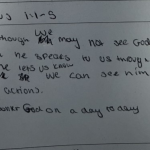 1:1-5
though we may not see God
he speaks to us through
he lets us know
we can see him
actions).
God on a day to day